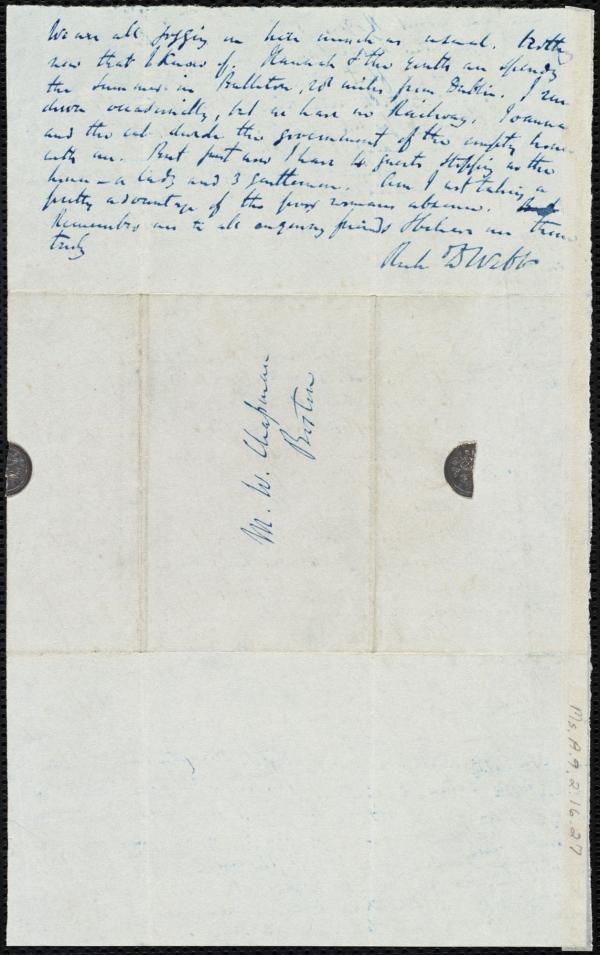 We are all jogging on here much as usual. Nothing
new that I know of. Hannah & the youths are spending
the summer in          , 28 miles from Dublin. I run
down occasionally, but we have no Railway. Joanna
and the cat divide the government of the empty house
with me. But just now I have 4 guests stopping in the
house – a lady and 3 gentlemen. Am I not taking a
pretty advantage of the poor womans absence.
Remember me to all enquiring friends & believe me
truly
Rich D Webb
M. W. Chapman
Boston
Ms. A. 9. 2. 16. 27